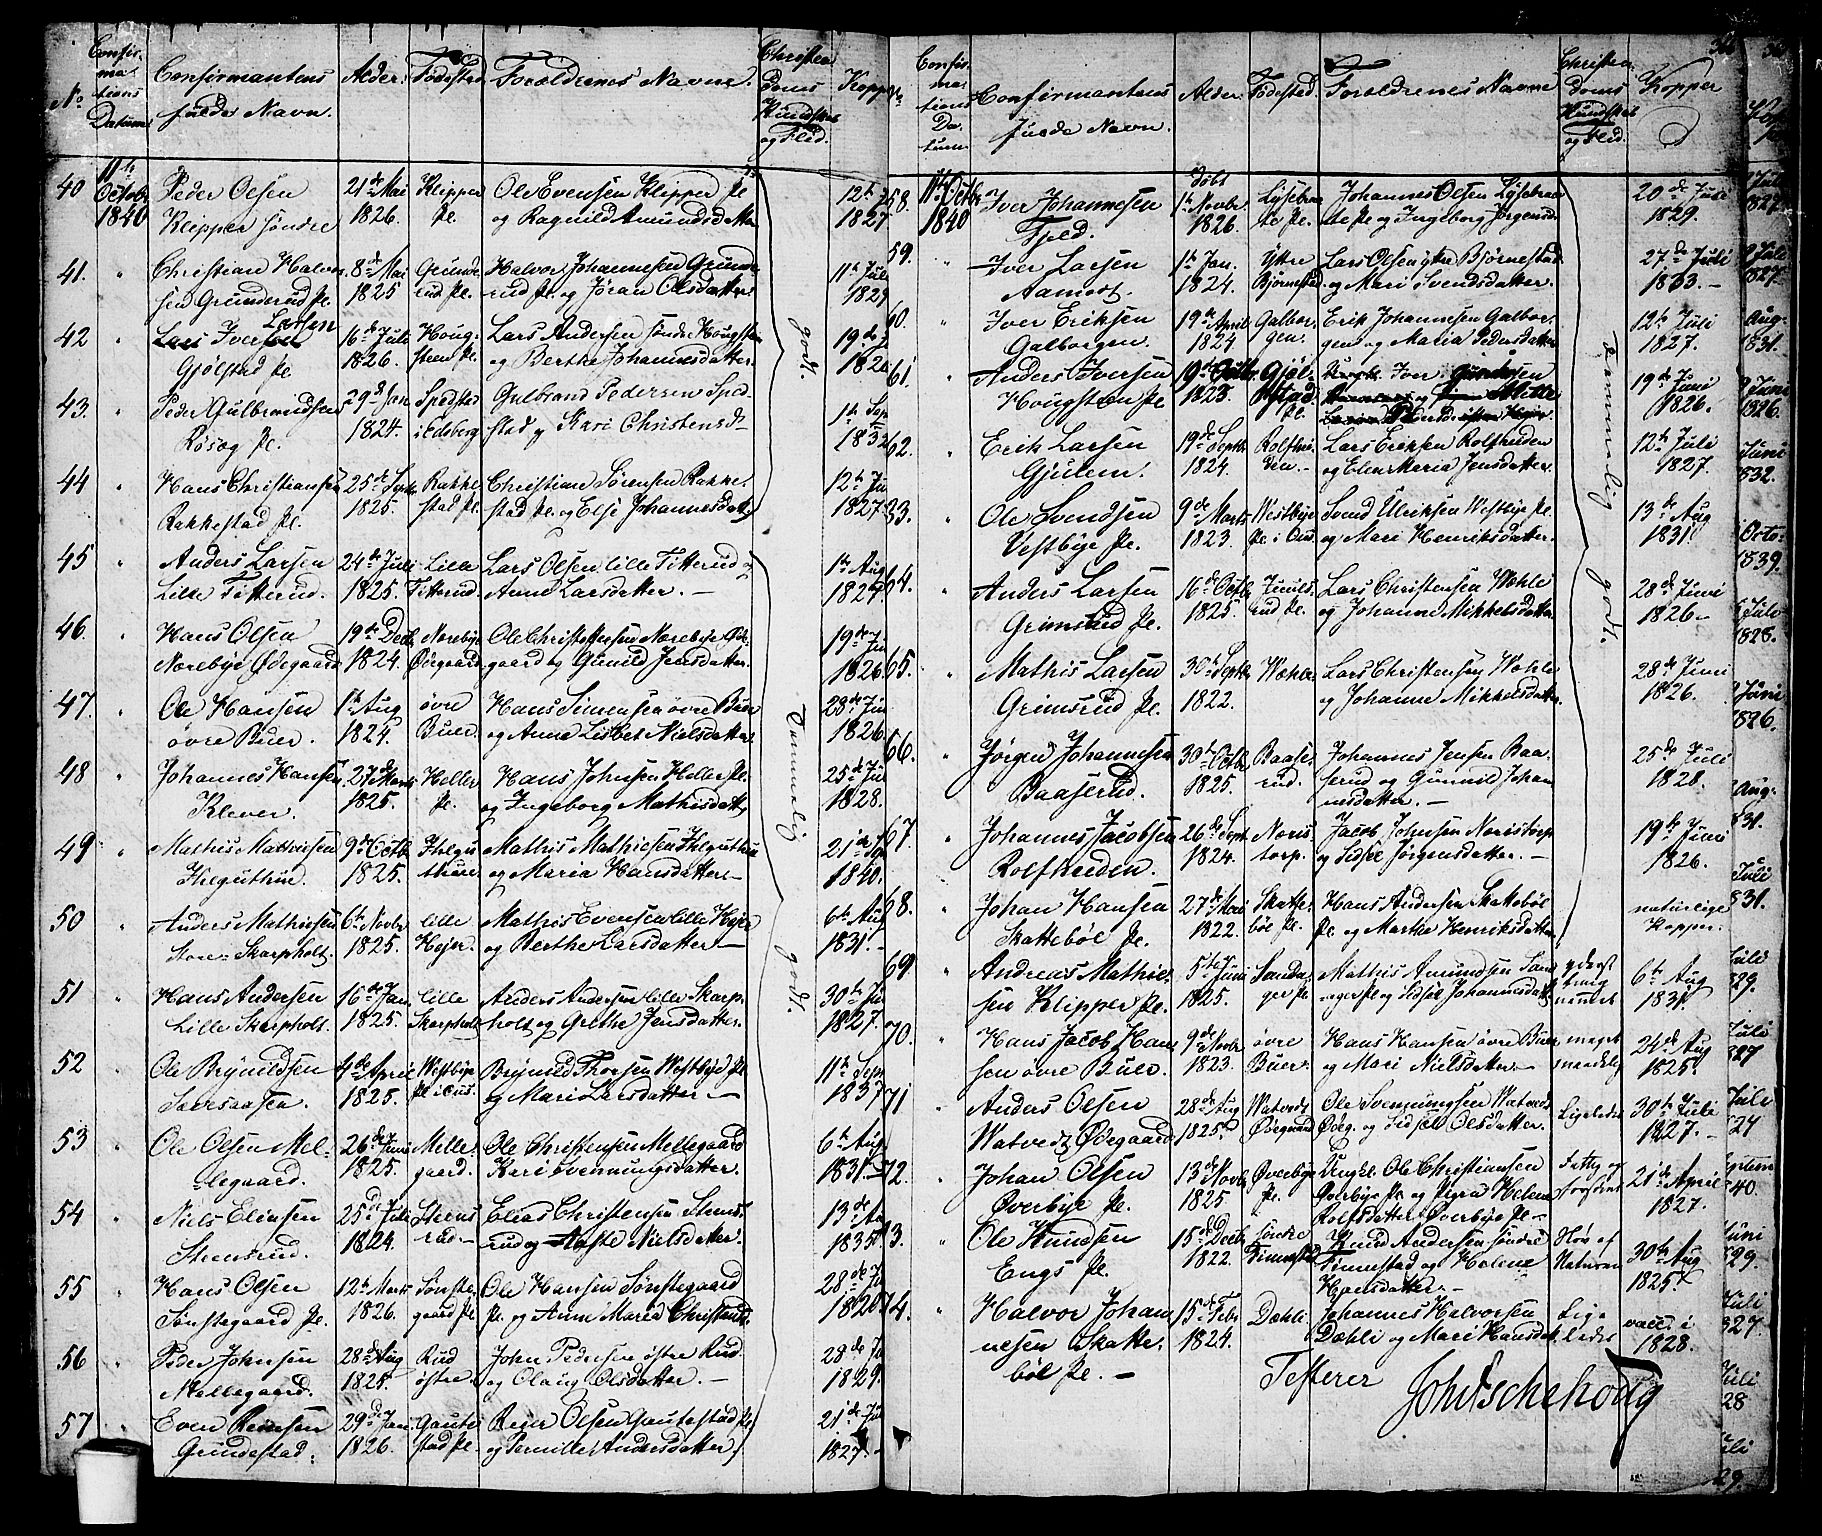 No
Confir-
ma-
tions
Datum
Confirmantens
fulde Navn.
Alder
Fødested
Forældrenes Navne.
Christen
doms
Kundskab
og Flid.
Kopper
40
11te
Octobr
1840
Peder Olsen
Klipper søndre
21de Mai
1826.
Klipper
pl.
Ole Evensen Klipper pl.
og Ragnild Amundsdatter
12te
1827
41.
Christian Halvor-
sen Grunderud pl.
8de Mai
1825
Grunde-
rud pl.
Halvor Johannesen Grunde-
rud pl. og Jøran Olsdatter.
11te Juli
1829
42
Lars Iversen Larsen
Gjølstad pl.
16de Juli
1826.
Houg-
steen pl.
Lars Andersen søndre Hougsteen
og Berthe Johannesdatter
19de
182
43.
Peder Gulbrandsen
Røsæg pl.
29de Jan
1824.
Spedstad
i Edsberg
Gulbrand Pedersen Sped-
stad og Kari Christensd
1te Sep
1832
44
Hans Christiansen
Rakkestad pl.
25de Septbr
1825.
Rakke
stad pl.
Christian Sørensen Rakke-
stad pl. og Else Johannesdatter
12te Ju
1827
45
Anders Larsen
Lille Titterud.
24de Juli
1825.
Lille
Titterud.
Lars Olsen lille Titterud og
Anne Larsdatter. —
1te Aug
1827.
46.
Hans Olsen
Nærebye Ødegaard
19de Decb
1824.
Nærebye
Ødegaard
Ole Christophersen Nærebye Øde-
gaard og Gunild Jensdatter.
19de Ju
1826
47.
Ole Hansen
øvre Buer.
1te Aug
1824.
øvre
Buer.
Hans Simensen øvre Buer
og Anne Lisbet Nielsdatter
28de Ju
1826.
48
Johannes Hansen
Klever.
27de Marts
1825.
Heller
pl.
Hans Johnsen Heller pl.
og Ingeborg Mathisdatter
25de Ju
1828.
49
Mathis Mathiesen
Ihlguthue.
9de Octb
1825.
Ihlgu
thue.
Mathis Mathiesen Ihlguthue
og Maria Hansdatter—
21de Sep
1840.
50
Anders Mathiesen
Store Skarpholt.
6te Novbr
1825.
lille
Hejer.
Mathis Evensen lille Hejer
og Berthe Larsdatter —
6te Aug
1831.
51
Hans Andersen
Lille Skarpholt.
16de Jan.
1825.
lille
Skarpholt
Anders Andersen lille Skarp-
holt og Grethe Jensdatter.
30te Ju
1827.
52
Ole Brynildsen
4de April
1825.
Westbye
pl. i Eus.
Brynild Thorsen Westbye pl.
og Mari Larsdatter —
11te Sep
1837
53
Ole Olsen Mel-
legaard.
26de Juni
1825.
Melle-
gaard.
Ole Christensen Mellegaard
Kari Svenningsdatter.
6te Aug
1831
54
Niels Eliasen
Stensrud.
25de Juli
1824.
Stens
rud
Elias Christensen Stens-
rud og Nielsdatter.
13de Au
1835
55
Hans Olsen
Tønstegaard pl.
12te Marts
1826.
Tønste-
gaard pl.
Ole Hansen Tønstegaard
pl. og Anne Maria Christensd
28de Ju
182
56
Peder Johnsen
Mellegaard.
28de Aug
1825.
Rud
østre
John Pedersen østre Rud
og Olaug Olsdatter. —
28de Ju
1829.
57
Even Reiersen
Grundestad.
29de Jan
1826.
Gaute-
stad pl.
Reier Olsen Gautestad pl.
og Pernille Andersdatter
21de Ju
1827.
godt.
Temmelig godt.
Confir-
ma-
tions
Da-
tum
Confirmantens
fulde Navn.
Alder
Fødested
Forældrenes Navne
Christen
doms
Kundskab
og Flid.
Kopper
58.
11te Octbr
1840
Iver Johannesen
Fjeld.
døbt
1te Novbr
1826.
Lysebraa
te pl.
Johannes Olsen Lysebraa
te pl og Ingeborg Jørgensd
20de Juli
1829.
59.
Iver Larsen
Aamodt.
1te Jan.
1824.
Yttre
Bjørnestad
Lars Olsen ytre Bjørnestad
og Mari Svendsdatter.
27de Juli
1833. —
60.
Iver Eriksen
Galborgen.
19de April
1824
Galbor-
gen.
Erik Johannesen Galbor-
gen og Maria Pedersdatter
12te Juli
1827.
61.
Anders Iversen
Hougsteen pl
19de Octbr
1825.
Gjøl-
stad
pl.
Ungk. Iver
19de Juni
1826.
62.
Erik Larsen
Gjulem.
19de Septbr
1824.
Rolfsrud-
den.—
Lars Eriksen Rolfsruden
og Elen Maria Jensdatter.
12te Juli
1827.
63.
Ole Svendsen
Vestbye pl.
9de Marts
1823.
Westbye
pl. i Eus.
Svend Ulriksen Westbye pl.
og Mari Henriksdatter.
13de Aug
1831.
64.
Anders Larsen
Grimsrud pl.
16de Octb
1825.
Juuls-
rud pl.
Lars Christensen Wæhle
og Johanne Mikkelsdatter
28de Juni
1826
65.
Mathis Larsen
Grimsrud pl.
30te Septbr
1822.
Wæhle.
Lars Christensen Wæhle
og Johanne Mikkelsdatter.
28de Juni
1826.
66.
Jørgen Johannesen
Baaserud.
30te Octb
1825.
Baase-
rud.
Johannes Jensen Baa-
serud og Gunnild Johan
nesdatter. —
25de Juli
1828.
67.
Johannes Jacobsen
Rolfsruden.
26de Sept
1824.
Noris
torp.
Jacob Johnsen Noristorp
og Sidsel Jørgensdatter. —
19de Juni
1826.
68.
Johan Hansen
Skattebøl pl.
27de Mai
1822.
Skatte-
bøl pl.
Hans Andersen Skattebøl
pl. og Marthe Henriksdatter
naturlige
Kopper.
69
Andreas Mathie-
sen Klipper pl.
5te Juni
1825.
Sanda-
ger pl.
Mathis Amundsen San
ager pl og Sidsel Johannesdatter
yderst
6te Aug
1831.
70.
Hans Jacob Han-
sen øvre Buer.
9de Novbr
1823.
øvre
Buer.
Hans Hansen øvre Buer
og Mari Nielsdatter. —
meget
maadelig
24de Aug
1825.
71
Anders Olsen
Watvedt Ødegaard
28de Aug
1825.
Watvedt
Ødegaard
Ole Svenningsen Watvedt
Ødeg. og Sidsel Olsdatter.
Ligeledes
30te Juli
1827. —
72.
Johan Olsen
Øverbye pl.
13de Novb
1825
Øverbye
pl.
Ungk. Ole Christiansen
Øverbye pl. og Pigen Helene
Rolfsdatter Øverbye pl. —
21de April
1827.
73.
Ole Knudsen
Engs pl.
15de Decb
1822.
søndre
Timmestad
Knud Andersen søndre
Timmestad og Helene
Hansdatter. —
Sløv af
Naturen
30te Aug
1825.
74.
Halvor Johan
nesen Skatte-
bøl pl. —
15de Febr
1824.
Dæhli
Johannes Halvorsen
Dæhli og Mari Hansdat
Lige
ledes
vacc. i
1828.
Temmelig godt.
Testerer
Joh. Aschehoug